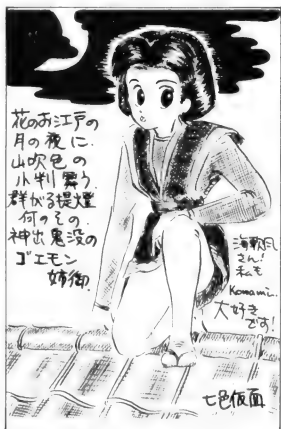 花のお江戸の
月の夜に
山吹色の
小判舞う
群がる提燈
何のその
神出鬼没の
ゴエモン
姉御
さん!
私も
Konami
大好き
です!
七色仮面